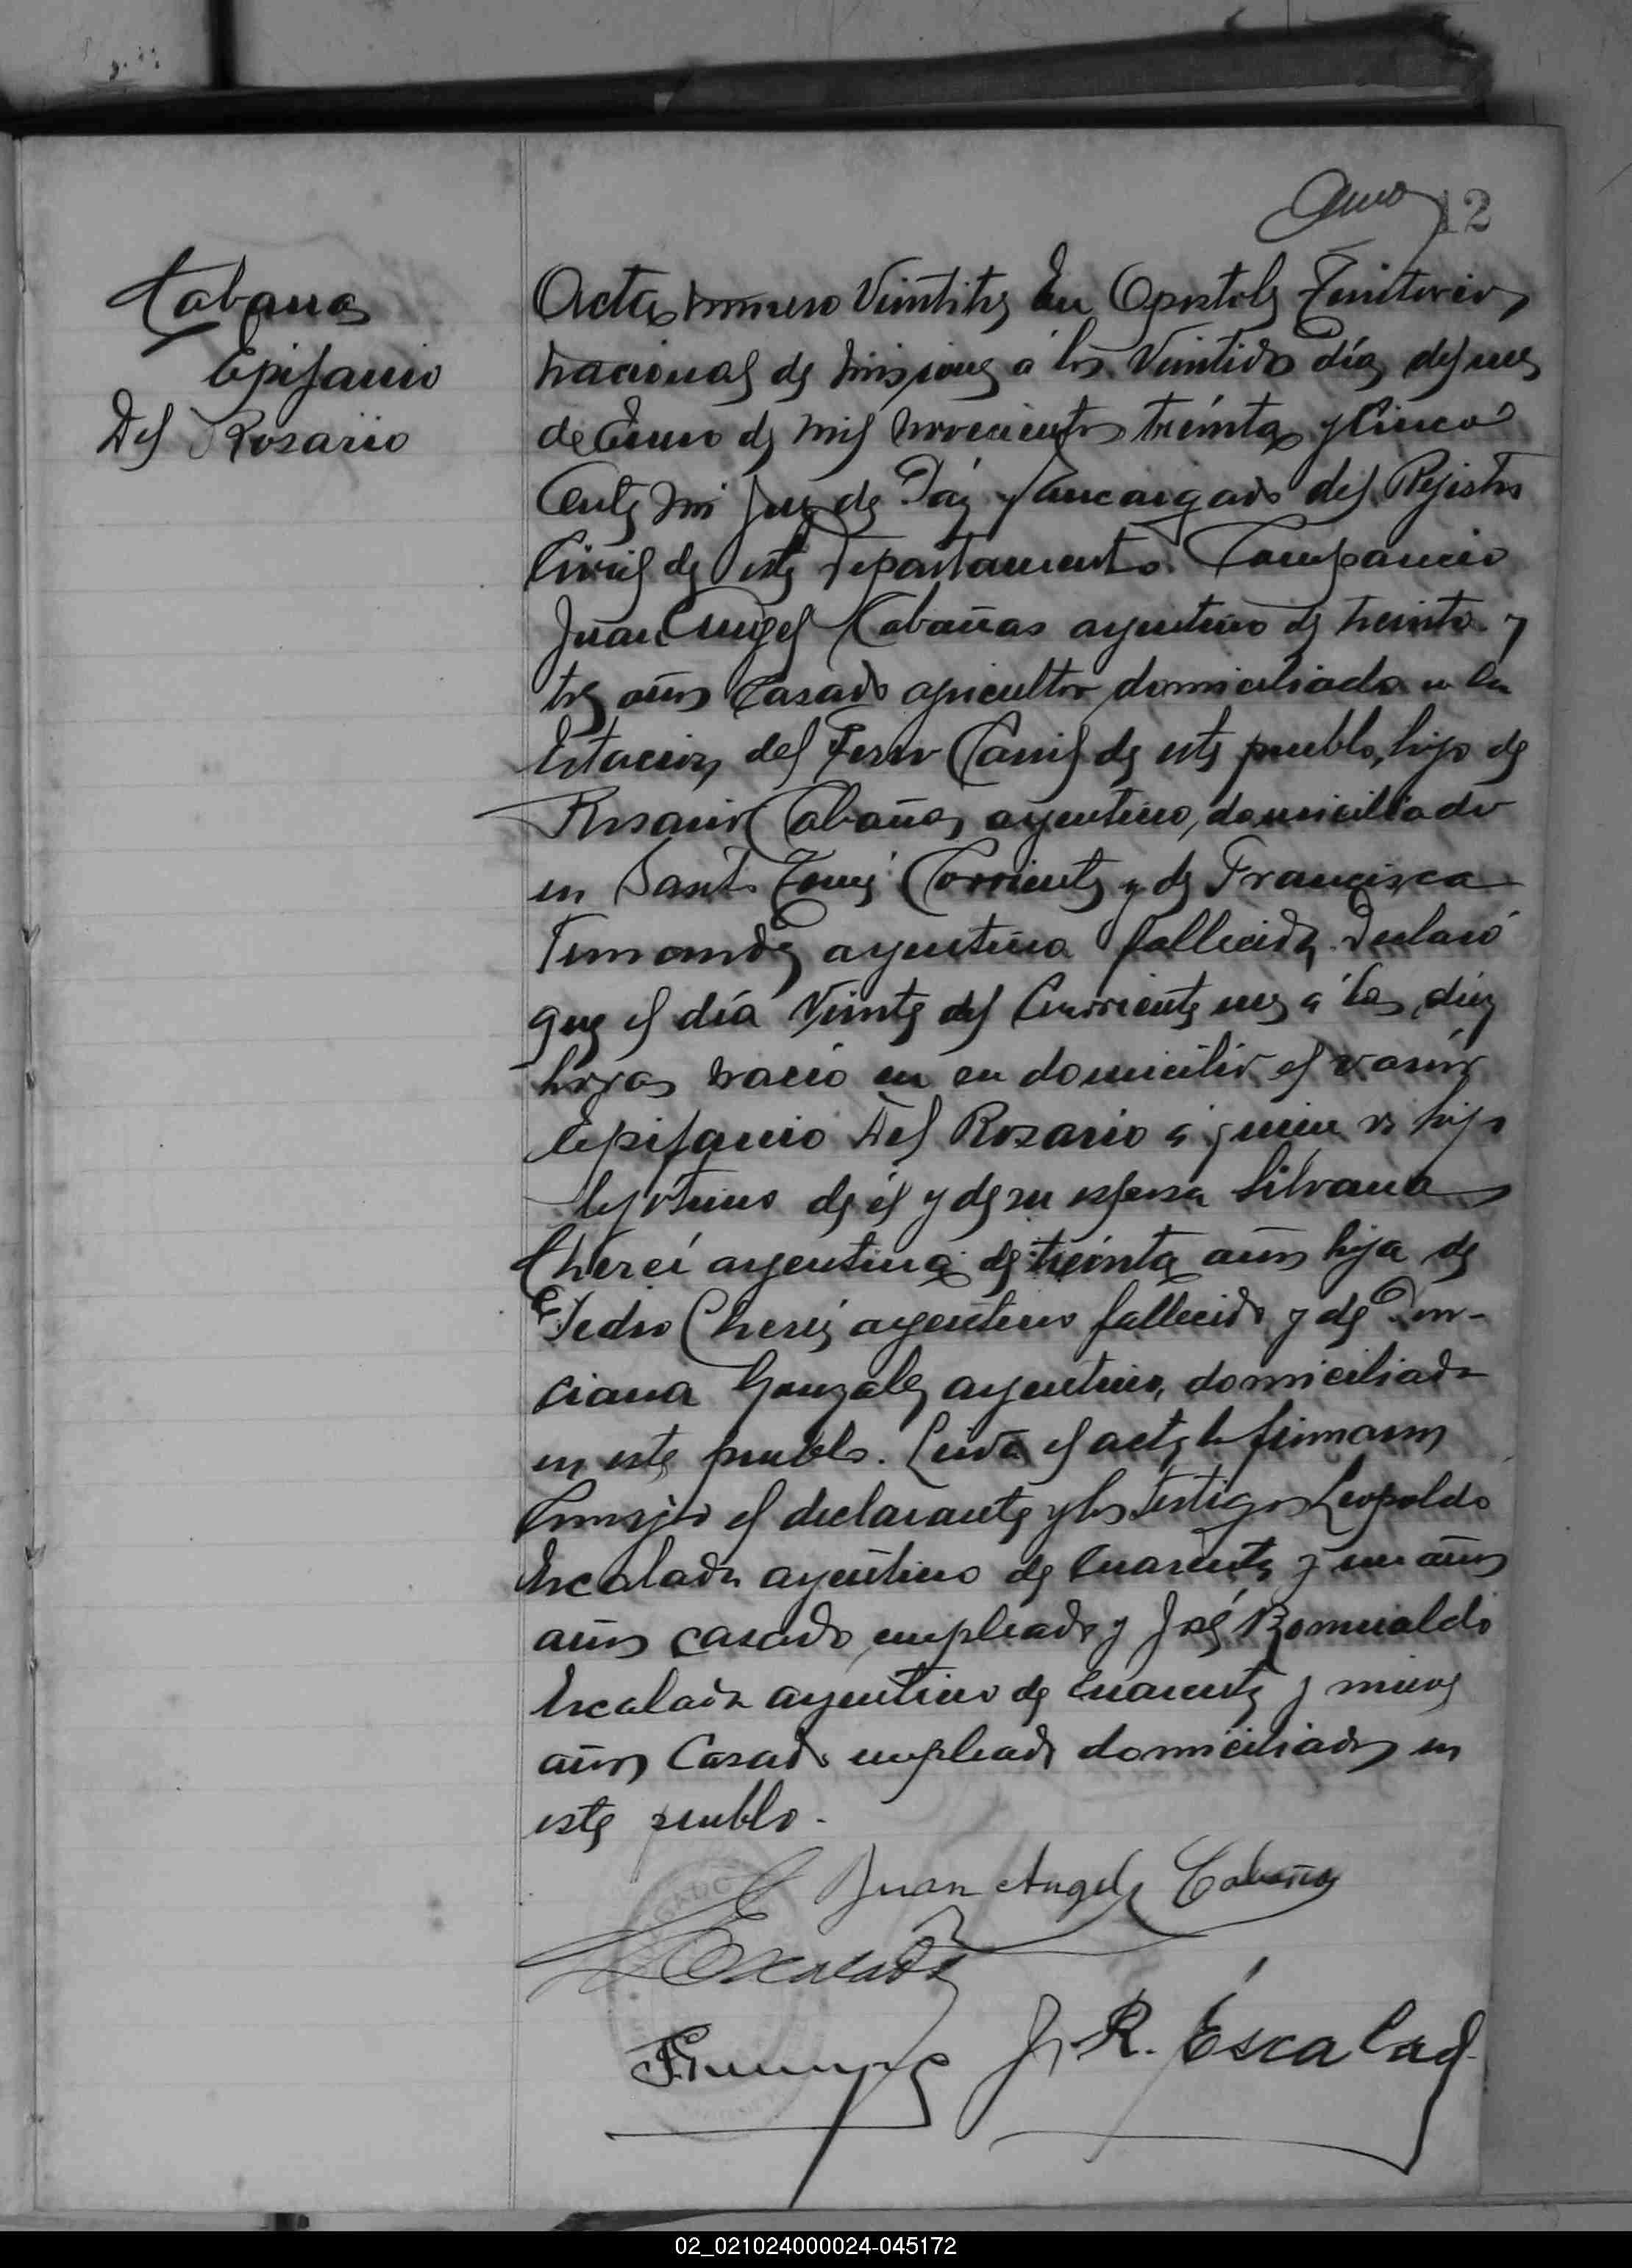 12
Cabañas
Epifanio
Del Rosario
Acta número Veintitres En Apostoles Territorio
Nacional de Misiones a los Veintidos días del mes
de Enero de mil novecientos treinta y Cinco
Ante mi Juez de Paz y Encargado del Rejistro
Civil de este Departamento. Comparecio
Juan Angel Cabañas argentino de treinta y
tres años Casado agricultor domiciliado en la
Estacion del Ferro Carril de este pueblo, hijo de
Rosario Cabañas argentino, domiciliado
en Santo Tomé Corrientes y de Francisca
Fernandez argentina fallecida Declaró
que el día Veinte del Corriente mes a las diez
horas nació en su domicilio el varón
Epifanio Del Rosario a quien es hijo
lejitimo de él y de su esposa Silvana
Cherei argentina de treinta años hija de
Pedro Cherei argentino fallecido y de Pon-
ciana Gonzalez argentina, domiciliada
en este pueblo. Leida el acta la firmaron
Conmigo el declarante y los testigos Leopoldo
Escalada argentino de Cuarenta y un años
años casado empleado y José Romualdo
Escalada argentino de Cuarenta y nueve
años Casado empleado domiciliados en
este pueblo.
Juan Angel Cabañas
L Escalada
J. R. Escalada
02_021024000024-045172